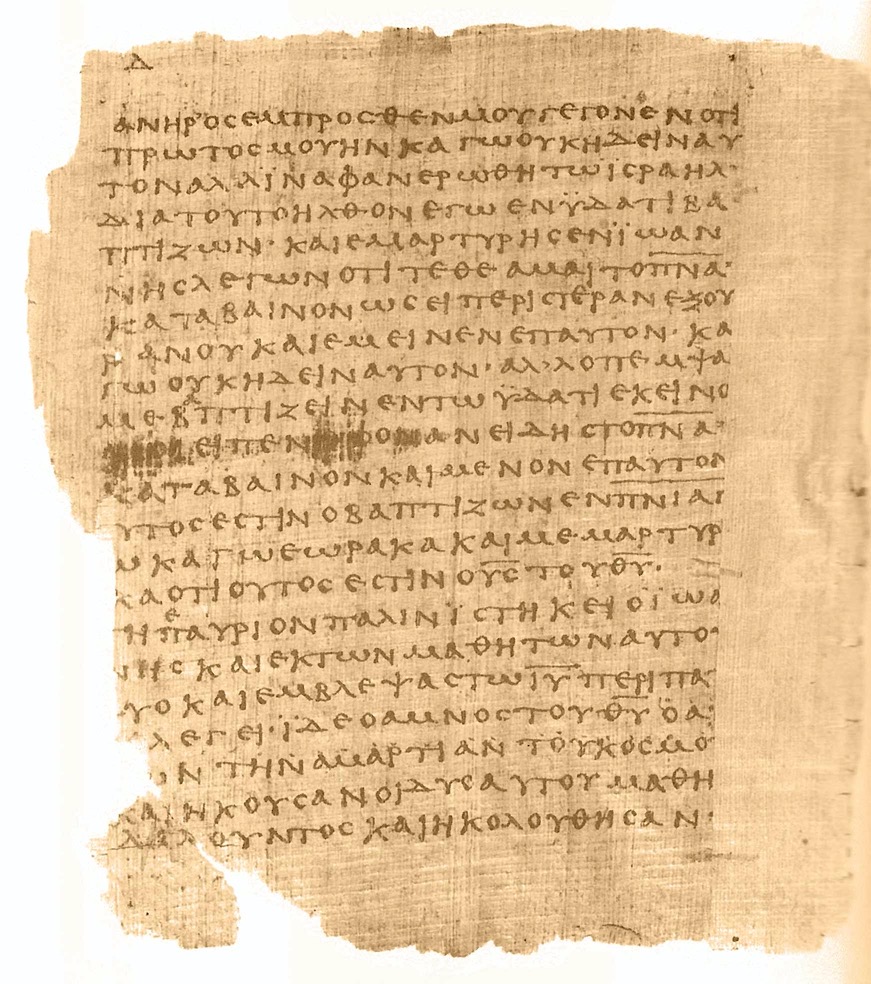 Δ
ΑΝΗΡΟϹΕΜΠΡΟϹΘΕΝΜΟΥΓΕΓΟΝΕΝΟΤΙ
ΠΡΩΤΟϹΜΟΥΗΝΚΑΓΩΟΥΚΗΔΕΙΝΑΥ
ΤΟΝΑΛΛΙΝΑΦΑΝΕΡΩΘΗΤΩΙϹΡΑΗΛ·
ΔΙΑΤΟΥΤΟΗΛΘΟΝΕΓΩΕΝΫΔΑΤΙΒΑ
ΠΤΙΖΩΝ·ΚΑΙΕΜΑΡΤΥΡΗϹΕΝΪΩΑΝ
ΝΗϹΛΕΓΩΝΟΤΙΤΕΘΕΑΜΑΙΤΟΠ̅Ν̅Α̅·
ΚΑΤΑΒΑΙΝΟΝΩϹΕΙΠΕΡΙϹΤΕΡΑΝΕΞΟΥ
ΡΑΝΟΥΚΑΙΕΜΕΙΝΕΝΕΠΑΥΤΟΝ·ΚΑ
ΓΩΟΥΚΗΔΕΙΝΑΥΤΟΝ·ΑΛ᾽ΛΟΠΕΜΨΑ
ΜΕΒΑΠΤΙΖΕΙΝΕΝΤΩΫΔΑΤΙΕΚΕΙΝΟ
ΕΙΠΕΝ ΑΝΕΙΔΗϹΤΟΠ̅Ν̅Α̅·
ΚΑΤΑΒΑΙΝΟΝΚΑΙΜΕΝΟΝΕΠΑΥΤΟΝ
ΥΤΟϹΕϹΤΙΝΟΒΑΠΤΙΖΩΝΕΝΠ̅Ν̅Ι̅ΑΓ
ΩΚΑΓΩΕΩΡΑΚΑΚΑΙΜΕΜΑΡΤΥΡ
ΚΑΟΤΙΟΥΤΟϹΕϹΤΙΝΟΥ̅Ϲ̅ΤΟΥΘ̅Υ̅·
ΤΗΕΠΑΥΡΙΟΝΠΑΛΙΝΪϹΤΗΚΕΙΟΪΩΑ
ΝΗϹΚΑΙΕΚΤΩΝΜΑΘΗΤΩΝΑΥΤΟ
ΔΥΟΚΑΙΕΜΒΛΕΨΑϹΤΩΙ̅Υ̅ΠΕΡΙΠΑ
ΛΕΓΕΙ·ΪΔΕΟΑΜΝΟϹΤΟΥΘ̅Υ̅ΟΑΙ
ΩΝΤΗΝΑΜΑΡΤΙΑΝΤΟΥΚΟϹΜΟ
ΚΑΙΗΚΟΥϹΑΝΟΙΔΥΟΑΥΤΟΥΜΑΘΗ
ΛΑΛΟΥΝΤΟϹΚΑΙΗΚΟΛΟΥΘΗϹΑΝ·